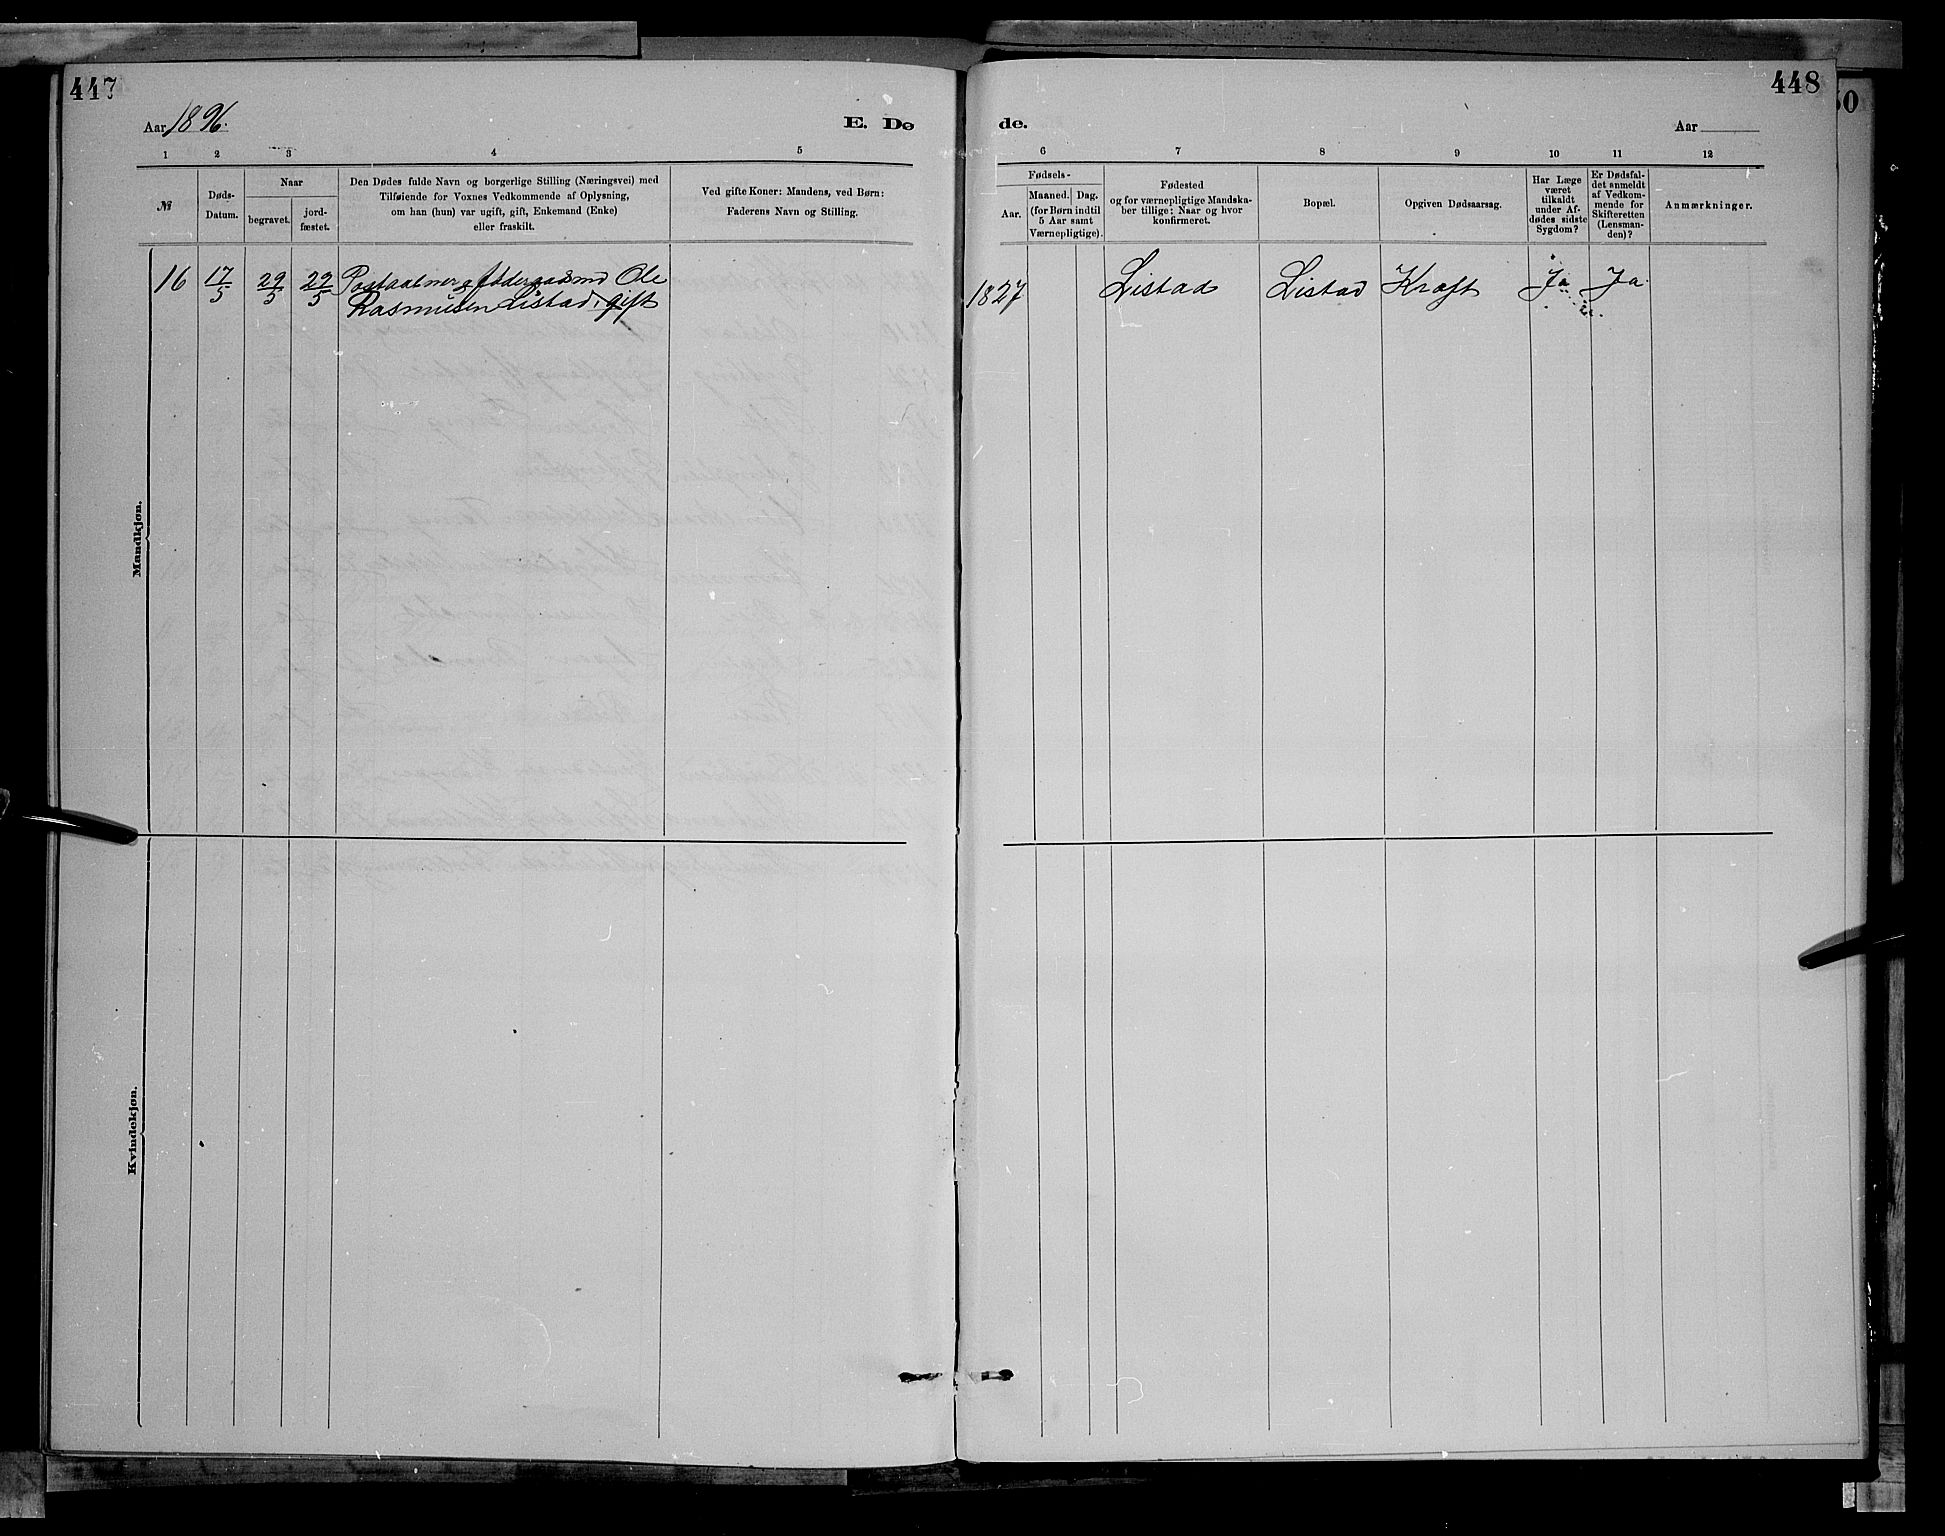 447
448
50
Aar 1896.
E. Dø
de.
Aar
1
2
3
4
5
6
7
8
9
10
11
12
№
Døds-
Datum.
Naar
begravet.
jord-
fæstet.
Den Dødes fulde Navn og borgerlige Stilling (Næringsvei) med
Tilføiende for Voxnes Vedkommende af Oplysning,
om han (hun) var ugift, gift, Enkemand (Enke)
eller fraskilt.
Ved gifte Koner: Mandens, ved Børn:
Faderens Navn og Stilling.
Fødsels-
Aar.
Maaned. Dag.
(for Børn indtil
5 Aar samt
Værnepligtige).
Fødested
og for værnepligtige Mandska-
ber tillige: Naar og hvor
konfirmeret.
Bopæl.
Opgiven Dødsaarsag.
Har Læge
været
tilkaldt
under Af-
dødes sidste
Sygdom?
Er Dødsfal-
det anmeldt
af Vedkom-
mende for
Skifteretten
(Lensman-
den)?
Anmærkninger.
16 17/5 29/5 29/5 Postaabner & Ole
Rasmusen Listad, gift
1827 Listad Listad Kræft Ja Ja.
Mandkjøn.
Kvindekjøn.